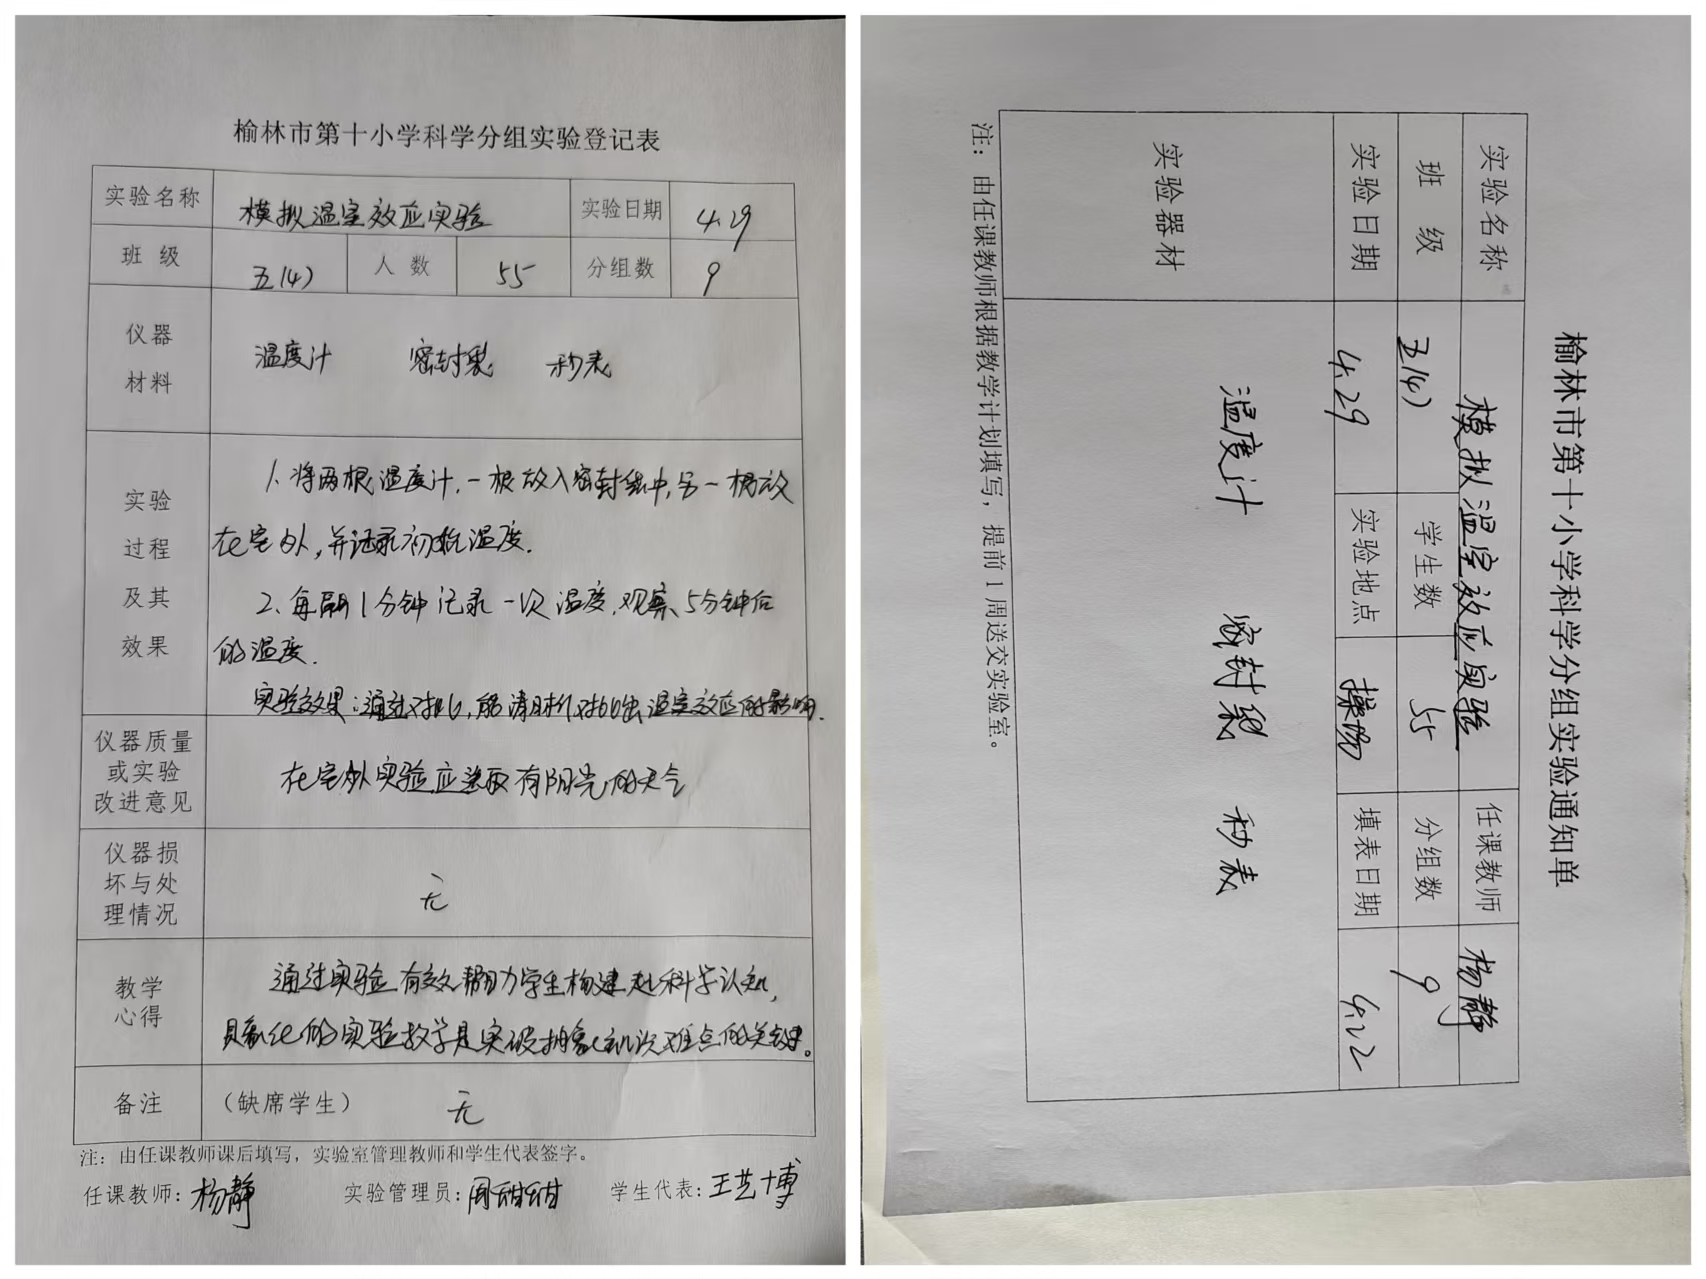 榆林市第十小学科学分组实验登记表
实验名称 模拟温室效应实验 实验日期 4.29
班 级 五(4) 人 数 55 分组数 9
仪器
材料
温度计 密封袋 秒表
实验
过程
及其
效果
1. 将两根温度计,一根放入密封袋中,另一根放
在室外,并记录初始温度.
2. 每隔1分钟记录一次温度,观察5分钟后
的温度.
实验效果:通过对比,能清晰对比出温室效应的影响.
仪器质量
或实验
改进意见
在室外实验应选取有阳光的天气
仪器损
坏与处
理情况
无
教学
心得
通过实验有效帮助学生构建起科学认知,
具象化的实验教学是突破抽象知识难点的关键。
备注 (缺席学生) 无
注:由任课教师课后填写,实验室管理教师和学生代表签字。
任课教师:杨静 实验管理员:周甜甜 学生代表:王艺博
榆林市第十小学科学分组实验通知单
实验名称 模拟温室效应实验 任课教师 杨静
班 级 五(4) 学生数 55 分组数 9
实验日期 4.29 实验地点 操场 填表日期 4.22
实验器材 温度计 密封袋 秒表
注:由任课教师根据教学计划填写,提前1周送交实验室。